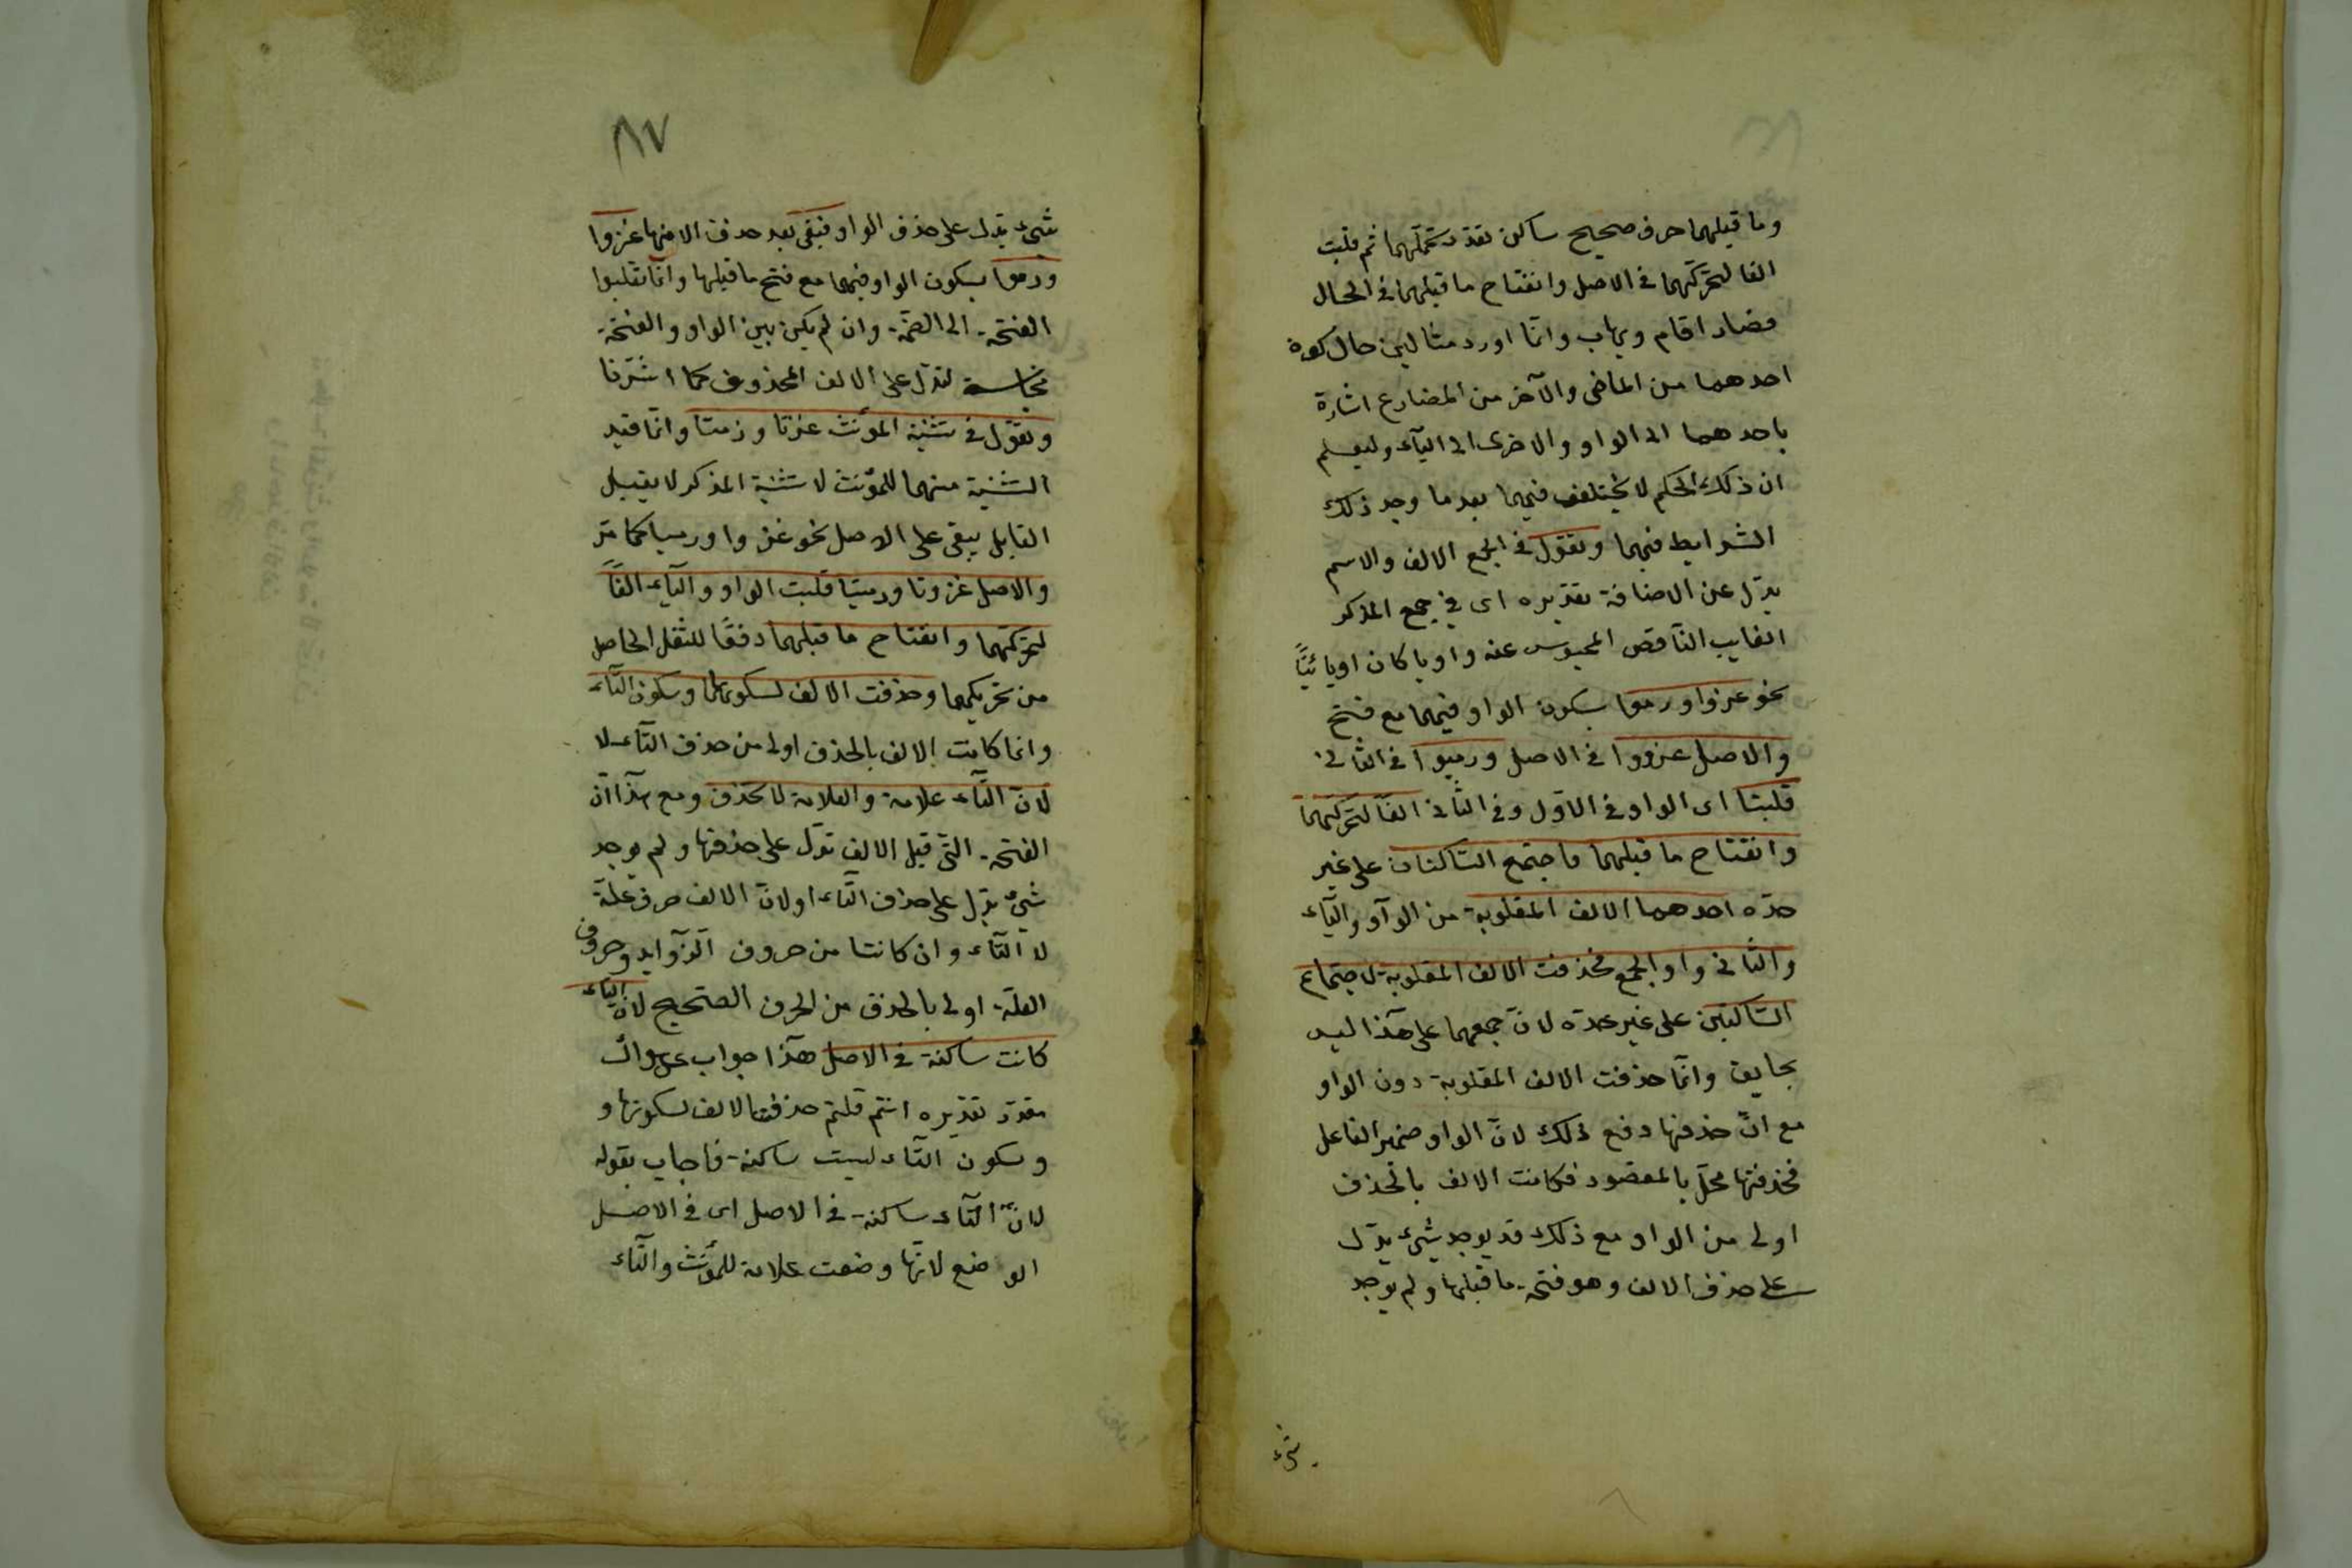 وما قبلهما حرف صحيح ساكن نقلت حركتهما ثم قلبت
الفا لتحركهما فى الاصل وانفتاح ما قبلهما فى الحال
فصار اقام ويهاب وانّما اورد مثالين حال كون
احدهما من الماضى والآخر من المضارع اشارة
باحدهما الى الواو والاخرى الى اليآء وليعلم
ان ذلك الحكم لا يختلف فيهما بعد ما وجد ذلك
الشرايط فيهما وتقول فى الجمع الالف والاسم
بدل عن الاضافة تقديره اى فى جمع المذكر
الغايب النّاقص المحبوس عنه واويا كان او يائيّاً
نحو غزوا ورموا بسكون الواو فيهما مع فتح
والاصل غزووا فى الاصل ورميوا فى الثانى
قلبتا اى الواو فى الاوّل وفى الثّانى الفاً لتحركهما
وانفتاح ما قبلهما فاجتمع السّاكنان على غير
حدّه احدهما الالف المقلوبة من الوآو واليآء
والثّانى واو الجمع فحذفت الالف المقلوبة لاجتماع
السّاكنين على غير حدّه لانّ جمعهما على هذا ليس
بجايز وانّما حذفت الالف المقلوبة دون الواو
مع انّ حذفها دفع ذلك لانّ الواو ضمير الفاعل
فحذفها مخلّ بالمقصود فكانت الالف بالحذف
اولى من الواو مع ذلك قد يوجد شئ يدل
على حذف الالف وهو فتحة ما قبلها ولم يوجد
شئ
٨٧
شئ يدل على حذف الواو فبقى بعد حذف الالف منها غزوا
ورموا بسكون الواو فيهما مع فتح ما قبلها وانّما تقلبوا
الفتحة الى الضمّة وان لم يكن بين الواو والفتحة
مجانسة لتدلّ على الالف المحذوف كما اشرنا
وتقول فى تثنية المؤنث غزتا ورمتا وانّما قيد
التثنية منهما للمؤنث لا تثنية المذكر لا يقبل
القابل يبقى على الاصل نحو غزوا ورميا كما مرّ
والاصل غزوتا ورميتا قلبت الواو واليآء الفاً
لتحركهما وانفتاح ما قبلهما دفعًا للثقل الحاصل
من تحريكهما وحذفت الالف لسكونها وسكون التّآء
وانما كانت الالف بالحذف اولى من حذف التّآء لا
لانّ التّآء علامة والعلامة لا تحذف ومع هذا انّ
الفتحة التى قبل الالف تدل على حذفها ولم يوجد
شئ يدل على حذف التّاء او لانّ الالف حرف علّة
لا التّآء وان كانتا من حروف الزّوايد وحروف
العلّة اولى بالحذف من الحرف الصّحيح لانّ التاء
كانت ساكنة فى الاصل هذا جواب عن سؤال
مقدّر تقديره انتم قلتم حذفت الالف لسكونها و
وسكون التّاء ليست ساكنة فاجاب بقوله
لانّ التّآء ساكنة فى الاصل اى فى الاصل
الوضع لانّها وضعت علامة للمؤنث والتّاء